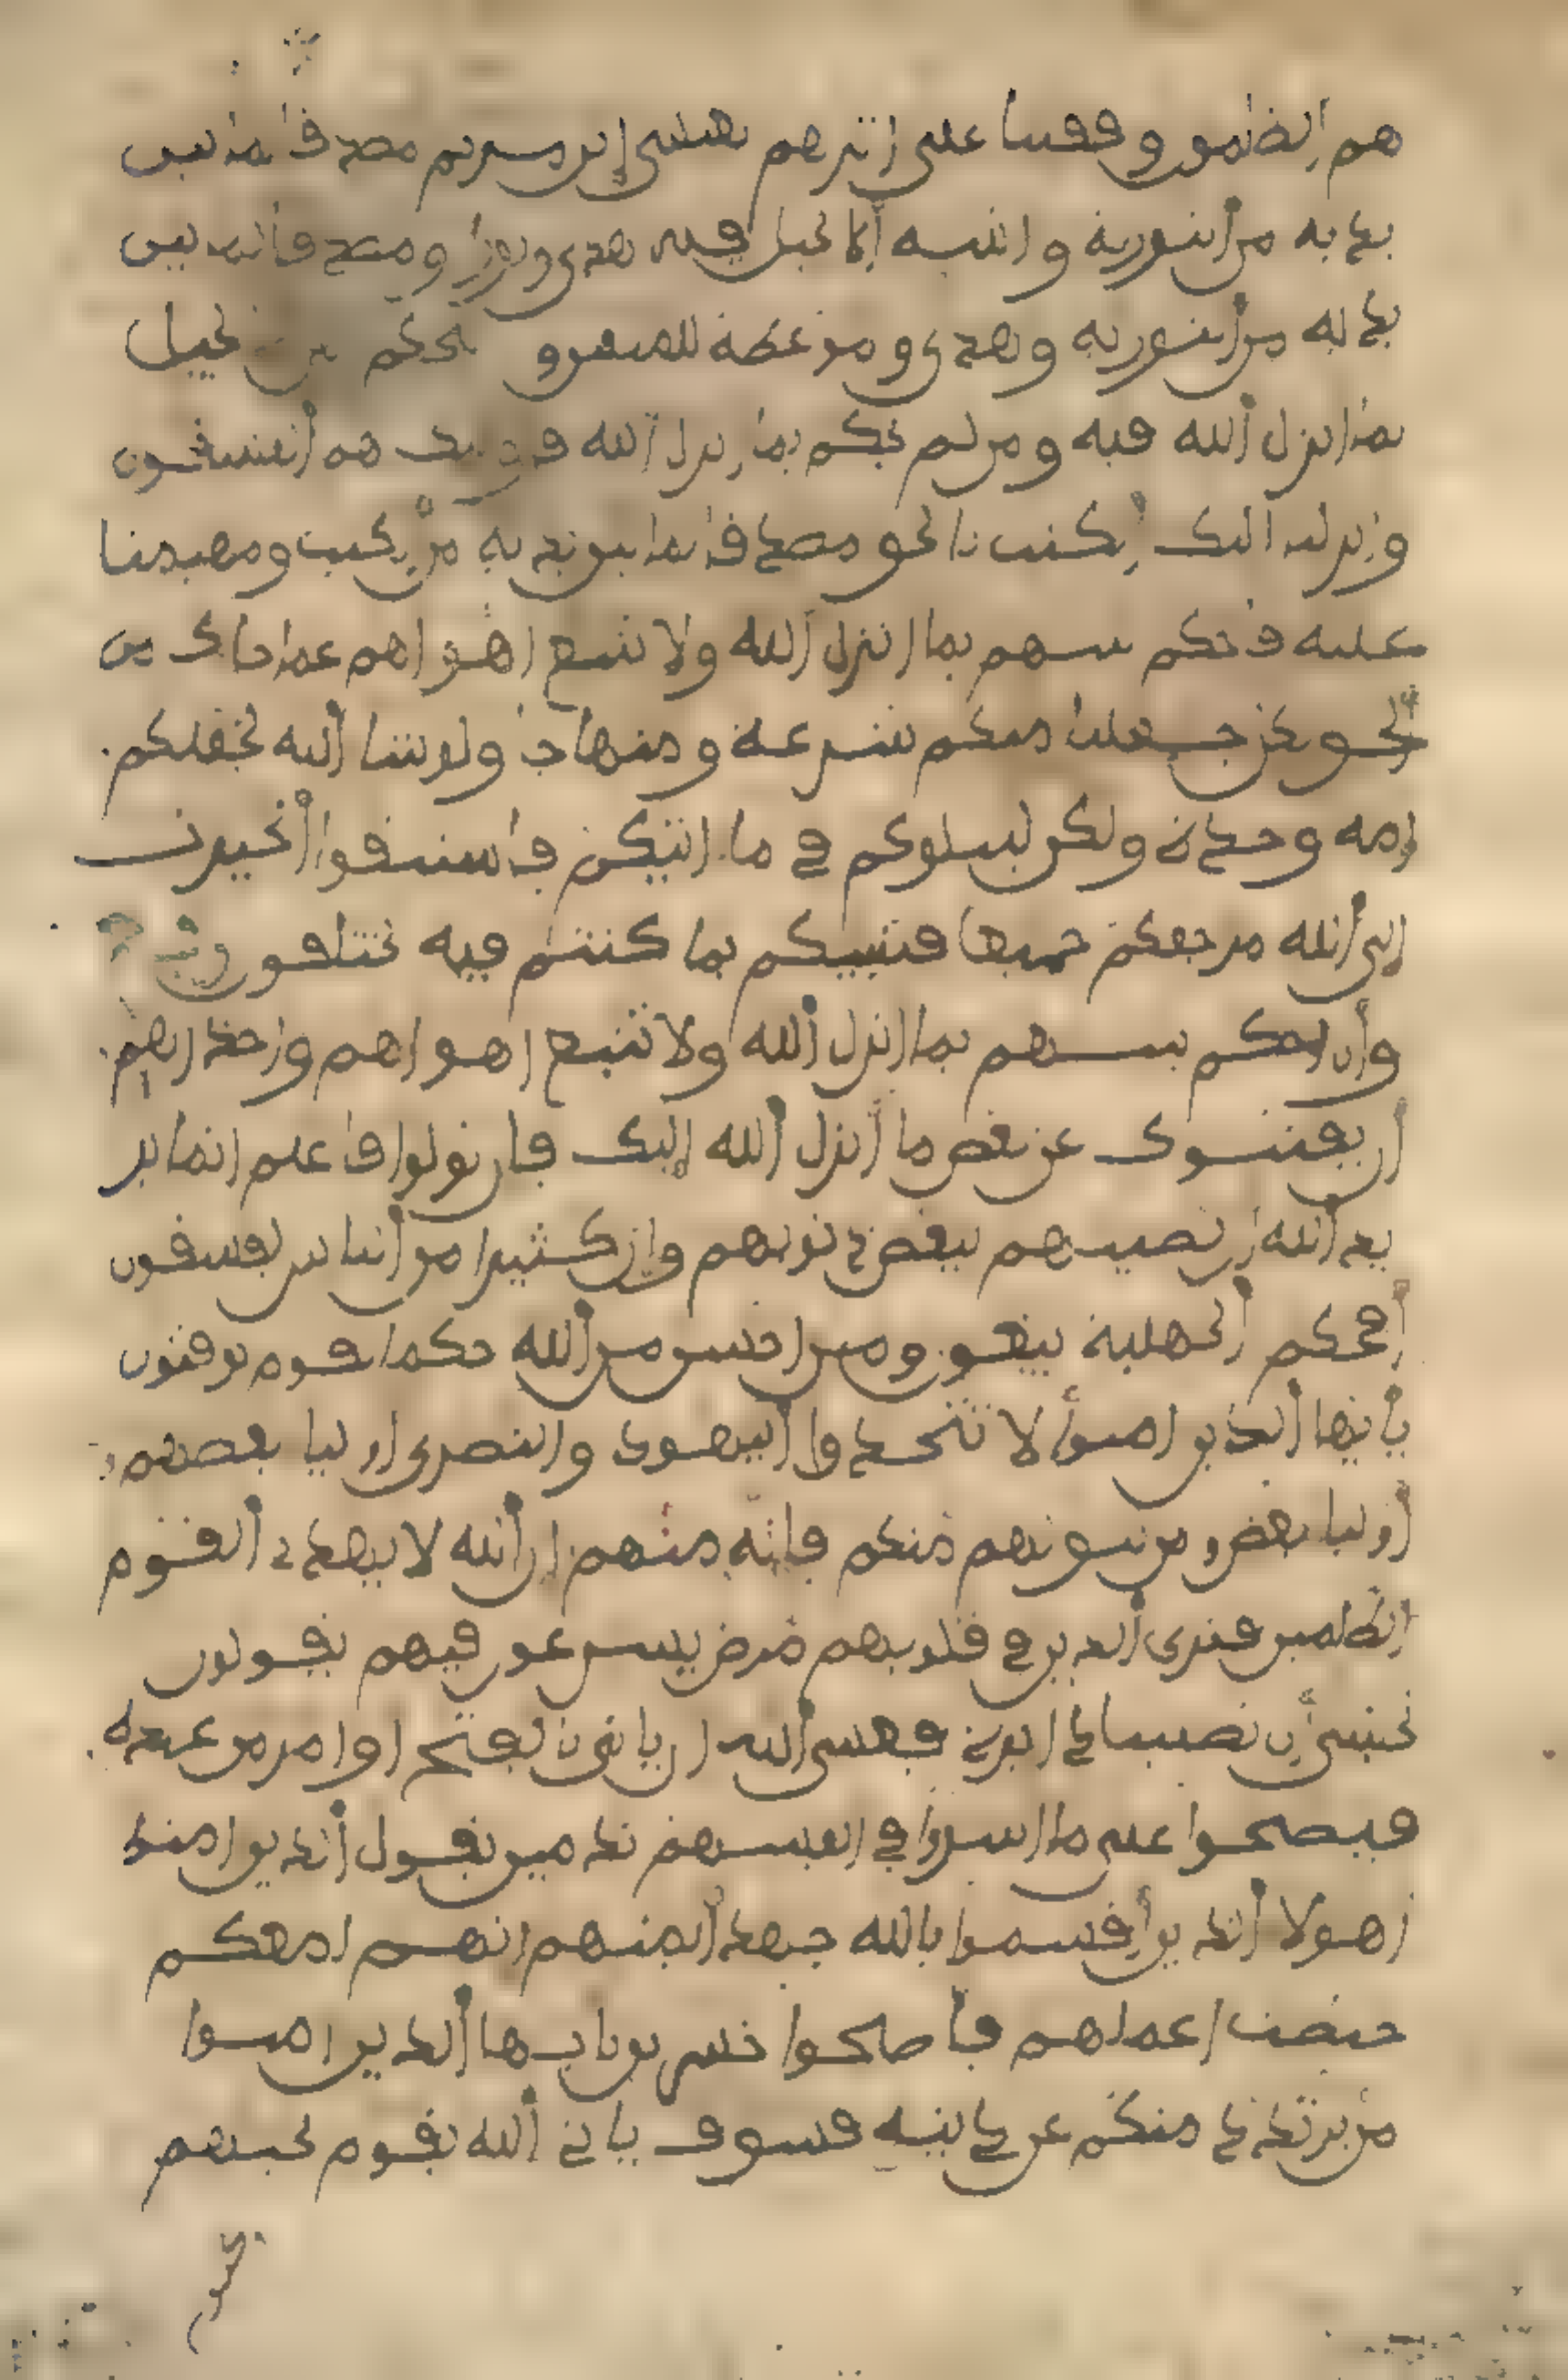 هم الظلمون وقفينا على اثرهم بعيسى ابن مريم مصدقا لما بين
يديه من التورية واتينه الانجيل فيه هدى ونور ومصدقا لما بين
يديه من التورية وهدى وموعظة للمتقين وليحكم اهل الانجيل
بما انزل الله فيه ومن لم يحكم بما انزل الله فاوليك هم الفسقون
وانزلنا اليك الكتب بالحق مصدقا لما بين يديه من الكتب ومهيمنا
عليه فاحكم بينهم بما انزل الله ولا تتبع اهواهم عما جاك من
الحق لكل جعلنا منكم شرعة ومنهاجا ولو شا الله لجعلكم
امة وحدة ولكن ليبلوكم في ما اتيكم فاستبقوا الخيرت
الى الله مرجعكم جميعا فينبيكم بما كنتم فيه تختلفون
وان احكم بينهم بما انزل الله ولا تتبع اهواهم واحذرهم
ان يفتنوك عن بعض ما انزل الله اليك فان تولوا فاعلم انما ير
يد الله ان يصيبهم ببعض ذنوبهم وان كثيرا من الناس لفسقون
افحكم الجهلية يبغون ومن احسن من الله حكما لقوم يوقنون
يايها الذين امنوا لا تتخذوا اليهود والنصرى اوليا بعضهم
اوليا بعض ومن يتولهم منكم فانه منهم ان الله لا يهدي القوم
الظلمين فترى الذين في قلوبهم مرض يسرعون فيهم يقولون
نخشى ان تصيبنا دايرة فعسى الله ان ياتي بالفتح او امر من عنده
فيصبحوا على ما اسروا في انفسهم ندمين يقول الذين امنوا
اهولا الذين اقسموا بالله جهد ايمنهم انهم لمعكم
حبطت اعملهم فاصبحوا خسرين يايها الذين امنوا
من يرتدد منكم عن دينه فسوف ياتي الله بقوم يحبهم